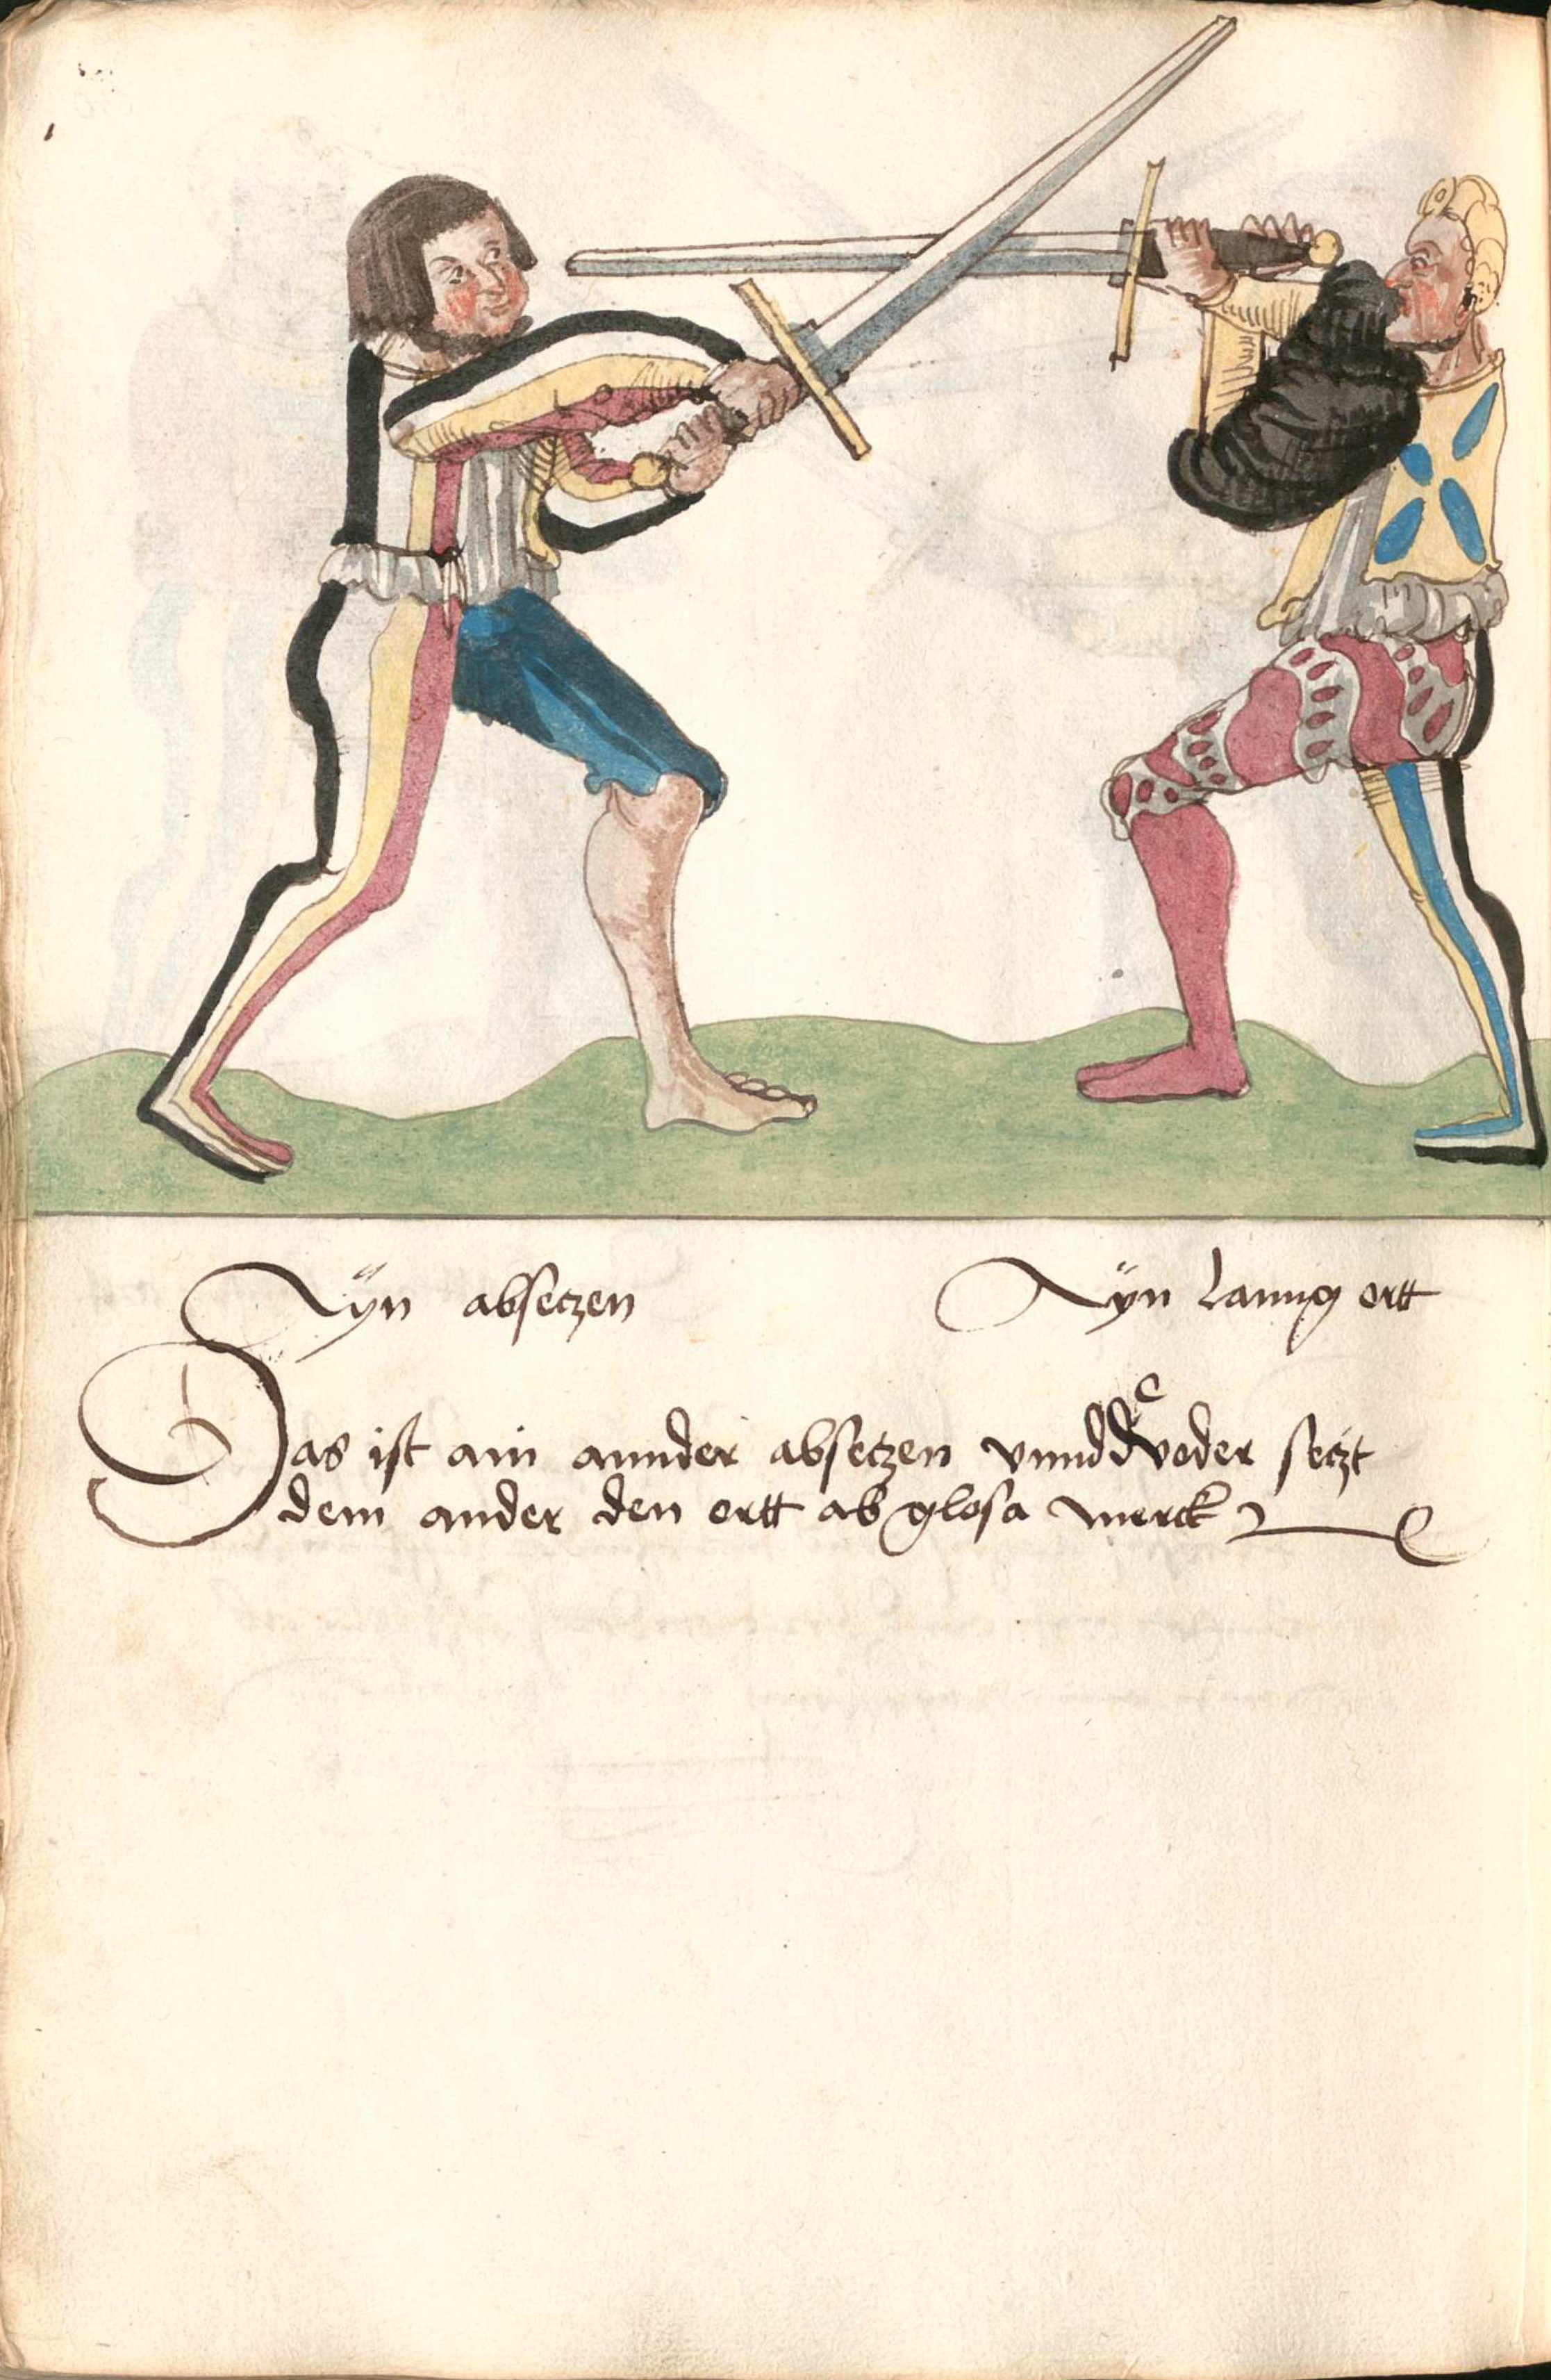 Aÿn absetzen
Aÿn lanng ortt
Das ist ain annder absetzen vnnd voder setzt
dem ander den ortt ab glosa merck